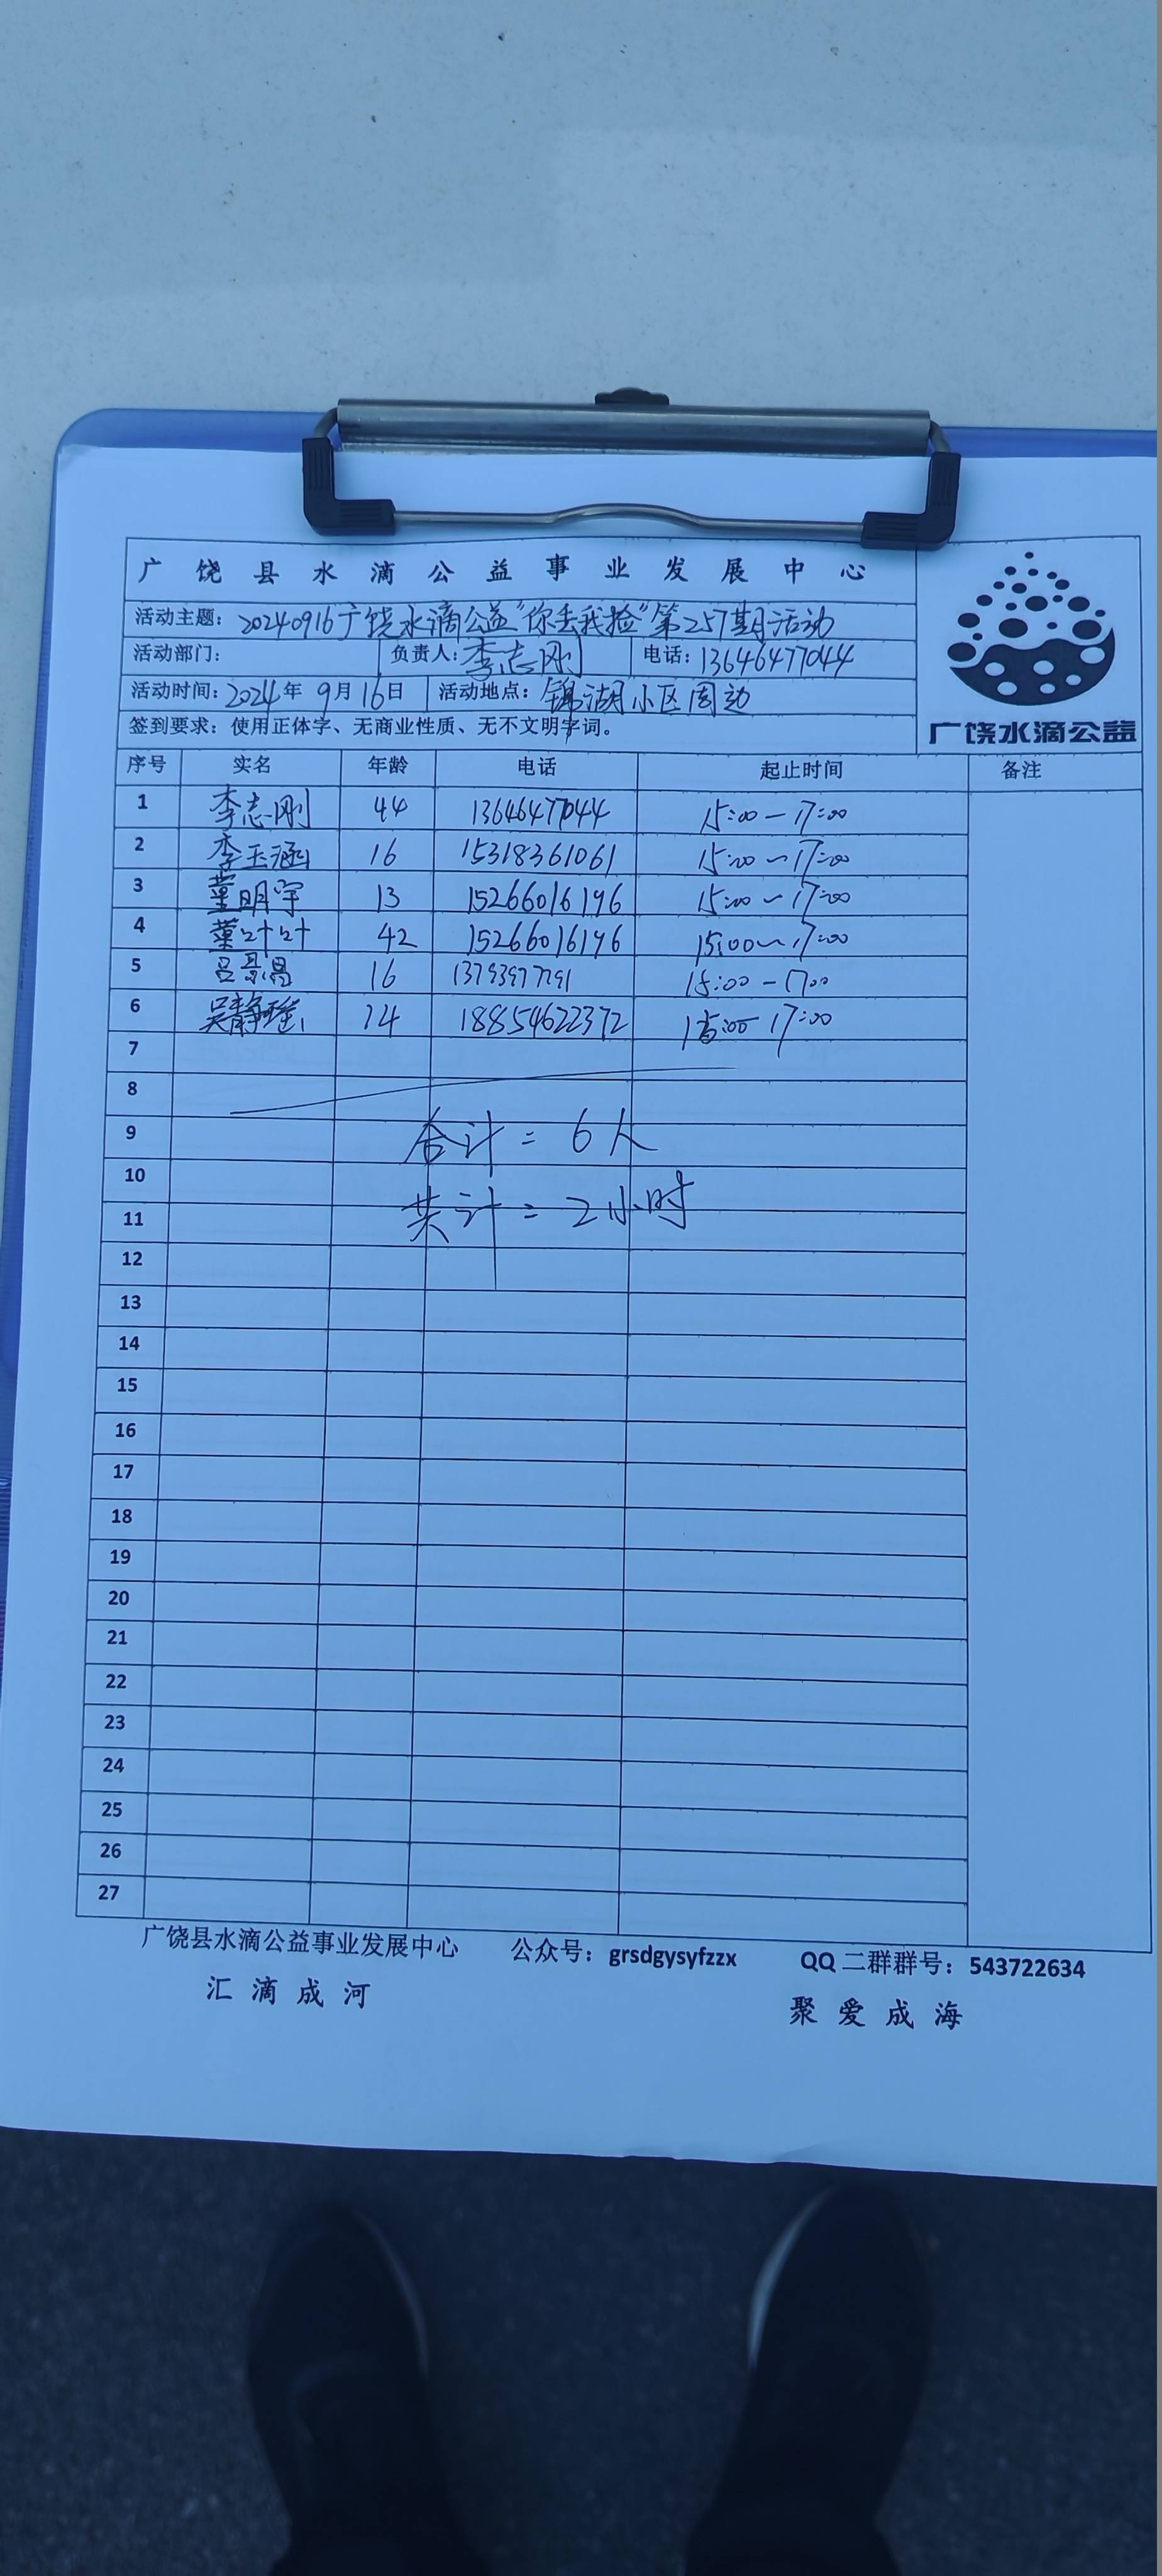 广饶县水滴公益事业发展中心
活动主题：20240916广饶水滴公益"你丢我捡"第257期活动
活动部门： 负责人：李志刚 电话：13646477044
活动时间：2024年9月16日 活动地点：锦湖小区周边
签到要求：使用正体字、无商业性质、无不文明字词。
广饶水滴公益
序号 实名 年龄 电话 起止时间 备注
1 李志刚 44 13646477044 15:00—17:00
2 李玉涵 16 15318361061 15:00～17:00
3 董明宇 13 15266016196 15:00～17:00
4 董叶叶 42 15266016196 15:00～17:00
5 吕景昌 16 13793977291 15:00-17:00
6 吴静 14 18854622372 15:00-17:00
7
8
9
合计=6人
10
11
共计=2小时
12
13
14
15
16
17
18
19
20
21
22
23
24
25
26
27
广饶县水滴公益事业发展中心 公众号：grsdgysyfzzx QQ二群群号：543722634
汇滴成河 聚爱成海